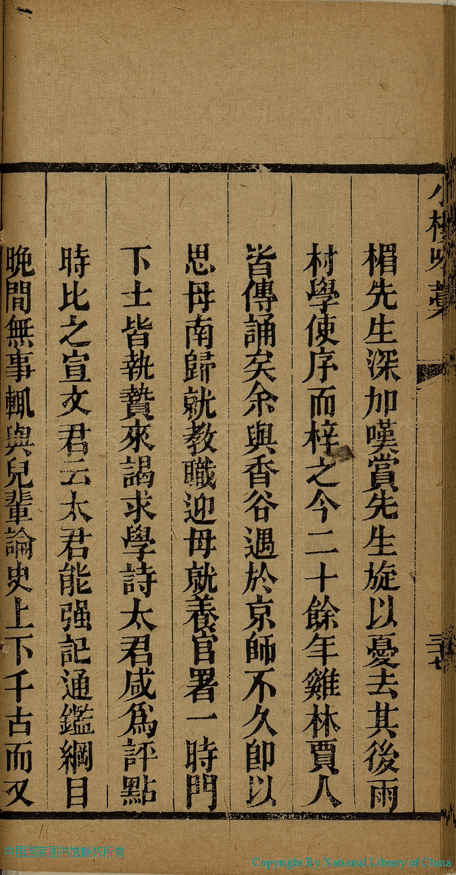 楣先生深加嘆賞先生旋以憂去其後雨
村學使序而梓之今二十餘年雞林賈人
皆傳誦矣余與香谷遇於京師不久卽以
思母南歸就教職迎母就養官署一時門
下士皆執贄來謁求學詩太君咸爲評點
時比之宣文君云太君能强記通鑑綱目
晩間無事輒與兒輩論史上下千古而又
中国国家图书馆版权所有
Copyright By National Library of China